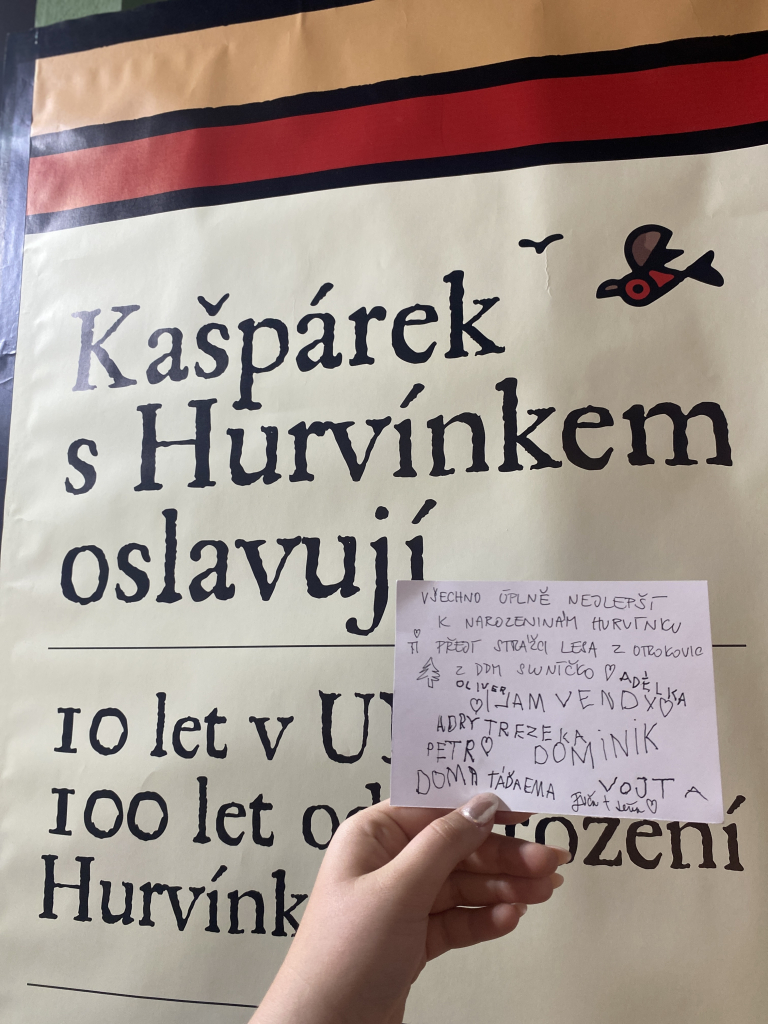 Kašpárek
s Hurvínkem
oslavují
10 let v
100 let od
Hurvínk
VŠECHNO ÚPLNĚ NEJLEPŠÍ
K NAROZENINÁM HURVÍNKU
TI PŘEJÍ STRÁŽCI LESA Z OTROKOVIC
Z DDM SLUNÍČKO ♡ ADÉLKA
OLIVER
JAM VENDY
ADRY TREZEKA
PETR ♡ DOMiNiK
DOMA TÁĎAEMA VOJTA